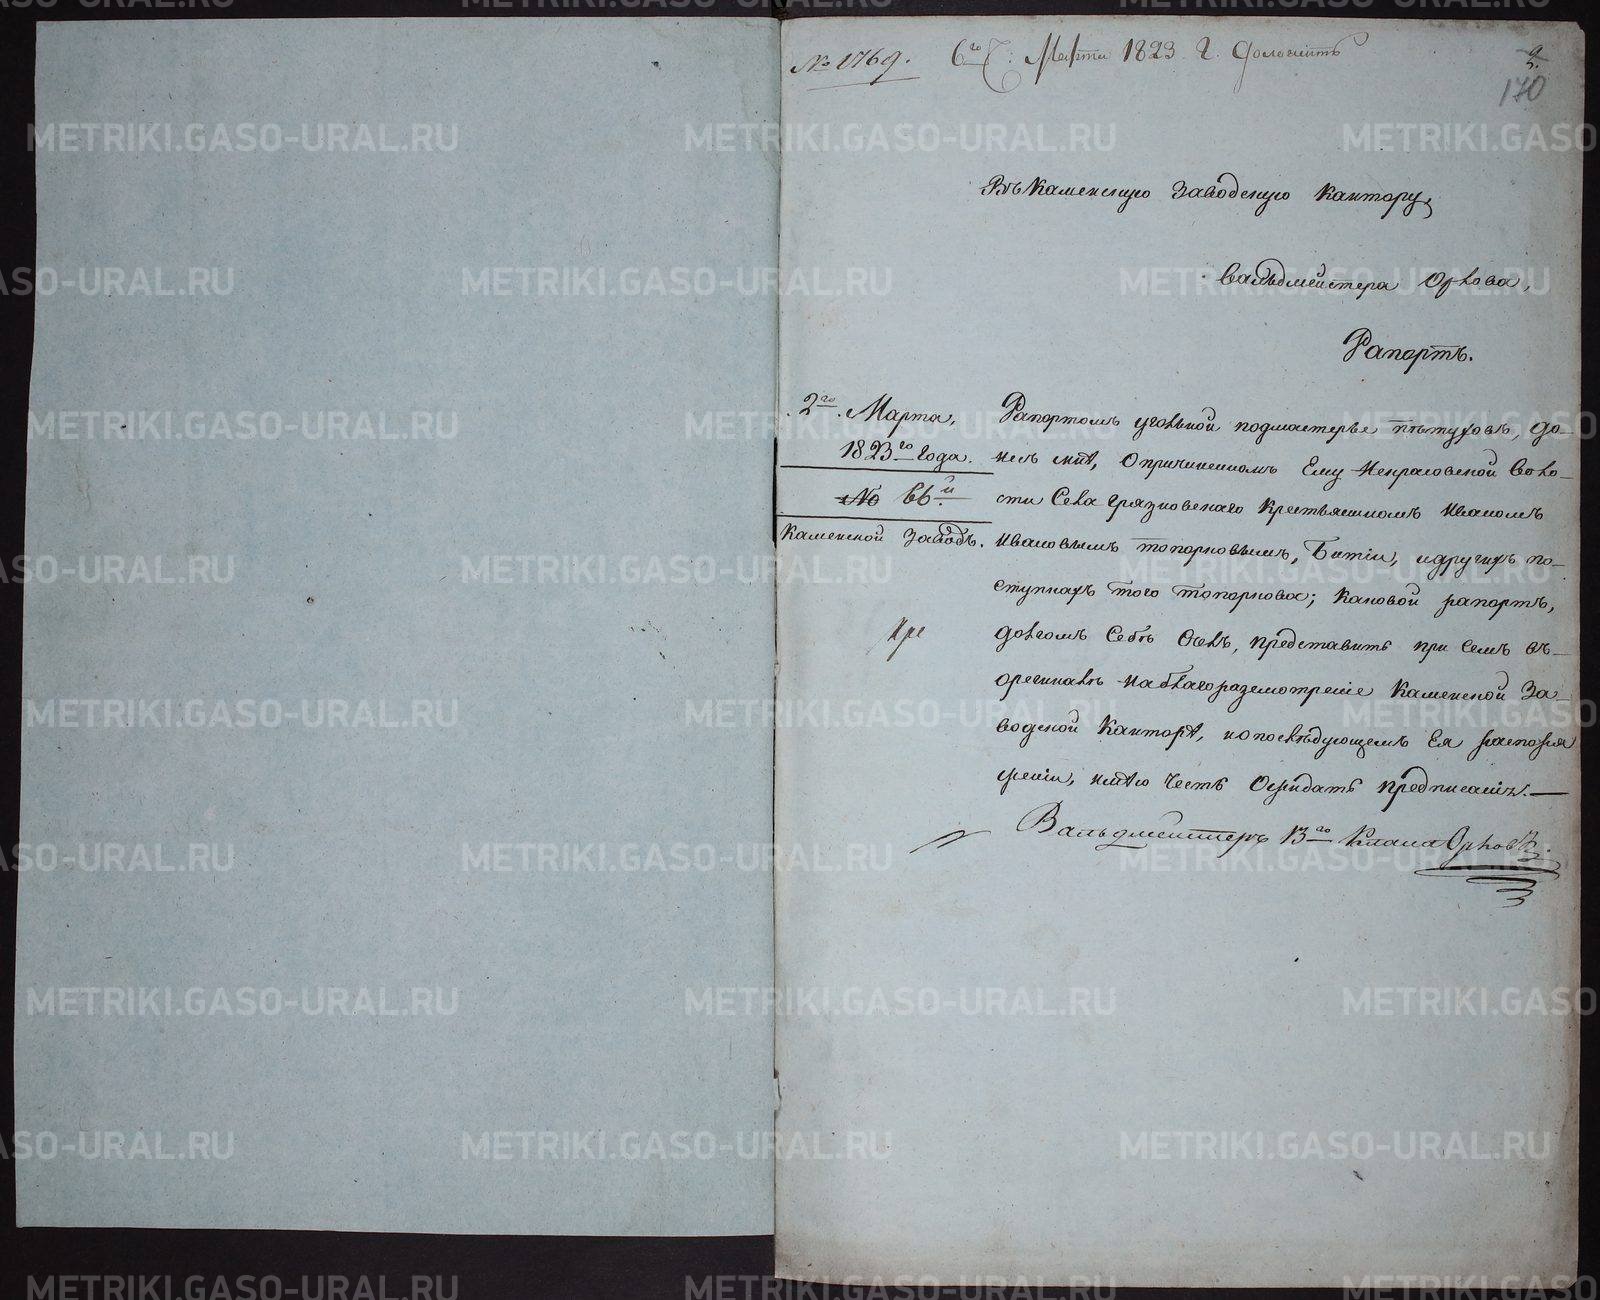 № 1769. 6го Марта 1823 г. доложить
2.
170
Въ Каменскую Заводскую Кантору,
Вальдмейстера Орлова,
Рапортъ.
2го. Марта,
1823го Года.
№ 66й.
Каменской Заводъ.
Рапортомъ угольной подмастерье Пѣтуховъ, до-
несъ мнѣ, опричиненномъ Ему Некрасовской Воло-
сти Села Грязновскаго Крестьяниномъ Иваномъ
Ивановымъ Топорковымъ, Битіи, идругихъ по-
ступкахъ того Топоркова; Каковой рапортъ,
долгомъ Себѣ Счелъ, представить при Семъ въ-
оригиналѣ наблагоразсмотреніе Каменской За-
водской Канторѣ, ипослѣдующемъ Ея распоря
женіи, имѣю Честь Ожидать предписанія.—
Вальдмейстеръ 13го Класса Орловъ.
METRIKI.GASO-URAL.RU